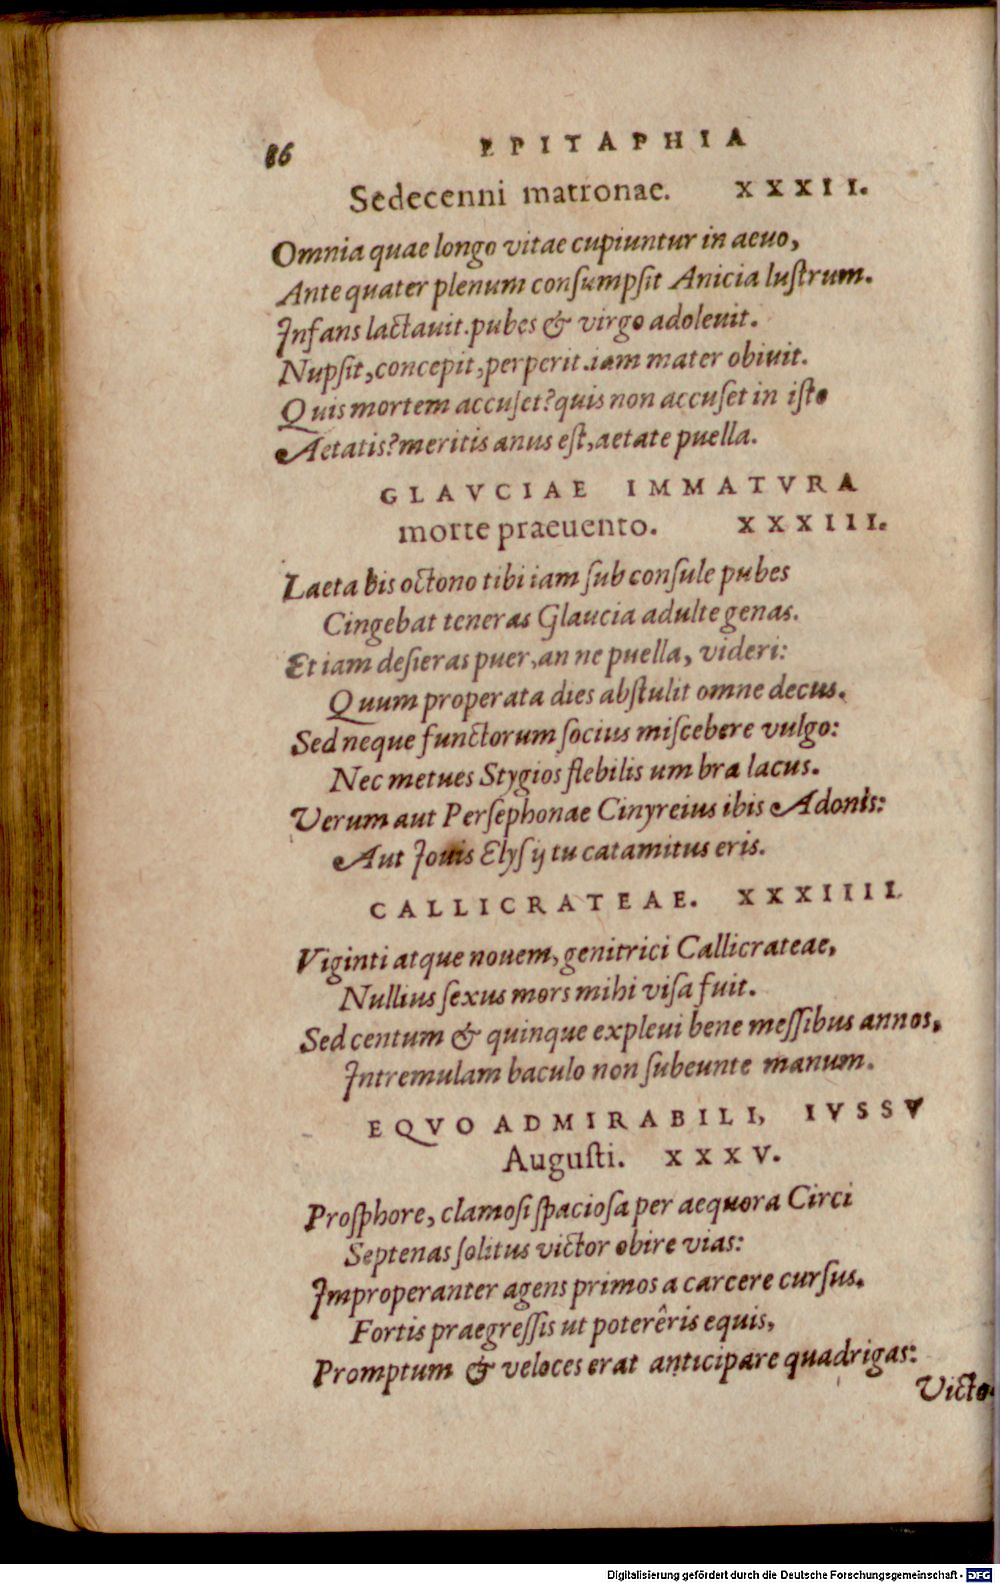 86 EPITAPHIA
Sedecenni matronae. XXXII.
Omnia quae longo vitae cupiuntur in aeuo,
Ante quater plenum consumpsit Anicia lustrum.
Infans lactauit. pubes & virgo adoleuit.
Nupsit, concepit, perperit. iam mater obiuit.
Quis mortem accuset? quis non accuset in iste
Aetatis? meritis anus est, aetate puella.
GLAVCIAE IMMATVRA
morte praeuento. XXXIII.
Laeta bis octono tibi iam sub consule pubes
Cingebat teneras Glaucia adulte genas.
Et iam desieras puer, an ne puella, videri:
Quum properata dies abstulit omne decus.
Sed neque functorum socius miscebere vulgo:
Nec metues Stygios flebilis umbra lacus.
Verum aut Persephonae Cinyreius ibis Adonis:
Aut Iouis Elysij tu catamitus eris.
CALLICRATEAE. XXXIIII
Viginti atque nouem, genitrici Callicrateae,
Nullius sexus mors mihi visa fuit.
Sed centum & quinque expleui bene messibus annos,
Intremulam baculo non subeunte manum.
EQVO ADMIRABILI, IVSSV
Augusti. XXXV.
Prosphore, clamosi spaciosa per aequora Circi
Septenas solitus victor obire vias:
Improperanter agens primos a carcere cursus.
Fortis praegressis ut poterêris equis,
Promptum & veloces erat anticipare quadrigas:
Victo-
Digitalisierung gefördert durch die Deutsche Forschungsgemeinschaft - DFG